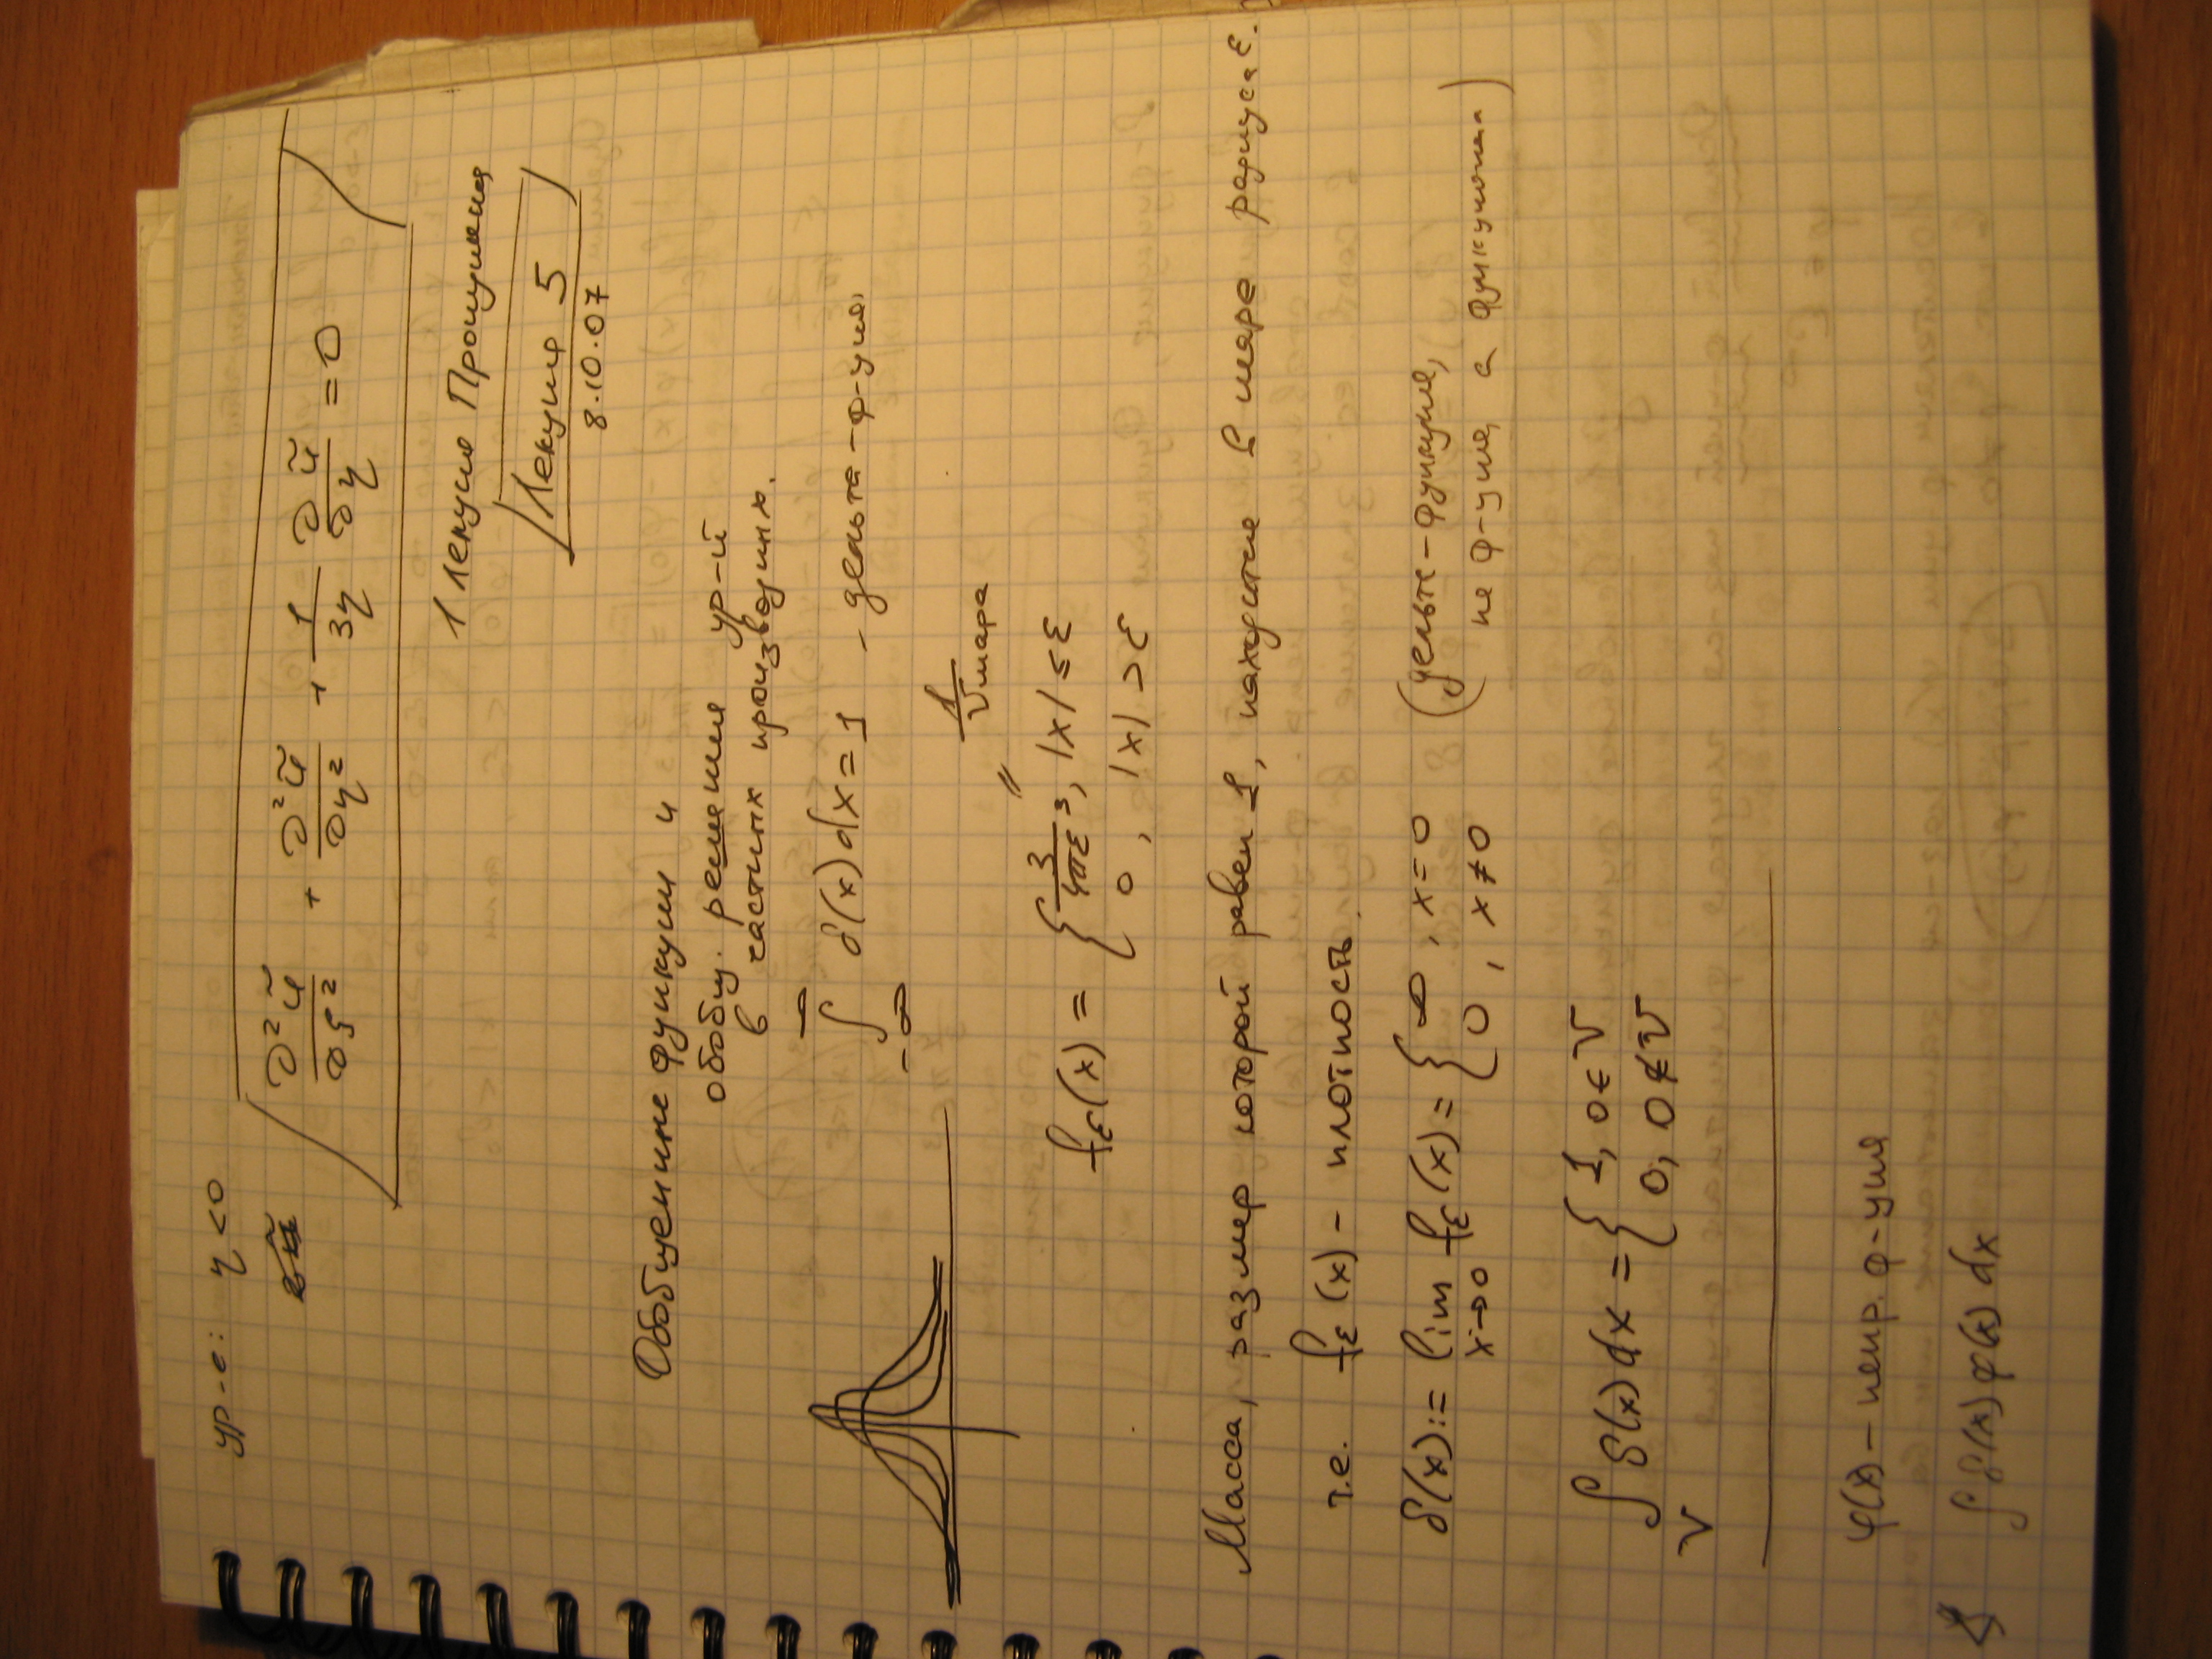 ур-е: η < 0
∂²ũ/∂ξ² + ∂²ũ/∂η² + 1/3η ∂ũ/∂η = 0
1 лекция Пропущена
Лекция 5
8.10.07
Обобщенные функции и
обобщ. решения ур-й
в частных производных.
∫_{-∞}^{∞} δ(x)dx = 1 - дельта-ф-ция
1/Vшара
=
f_ε(x) = { 3/4πε³, |x| ≤ ε
0, |x| > ε
Масса, размер которой равен 1, находятся в шаре радиуса ε.
т.е. f_ε(x) - плотность.
δ(x) := lim_{x→0} f_ε(x) = { ∞, x = 0
0, x ≠ 0
(дельта-функция,
не ф-ция, а функционал)
∫_V δ(x)dx = { 1, 0 ∈ V
0, 0 ∉ V
φ(x) - непр. ф-ция
∫ δ(x) φ(x) dx